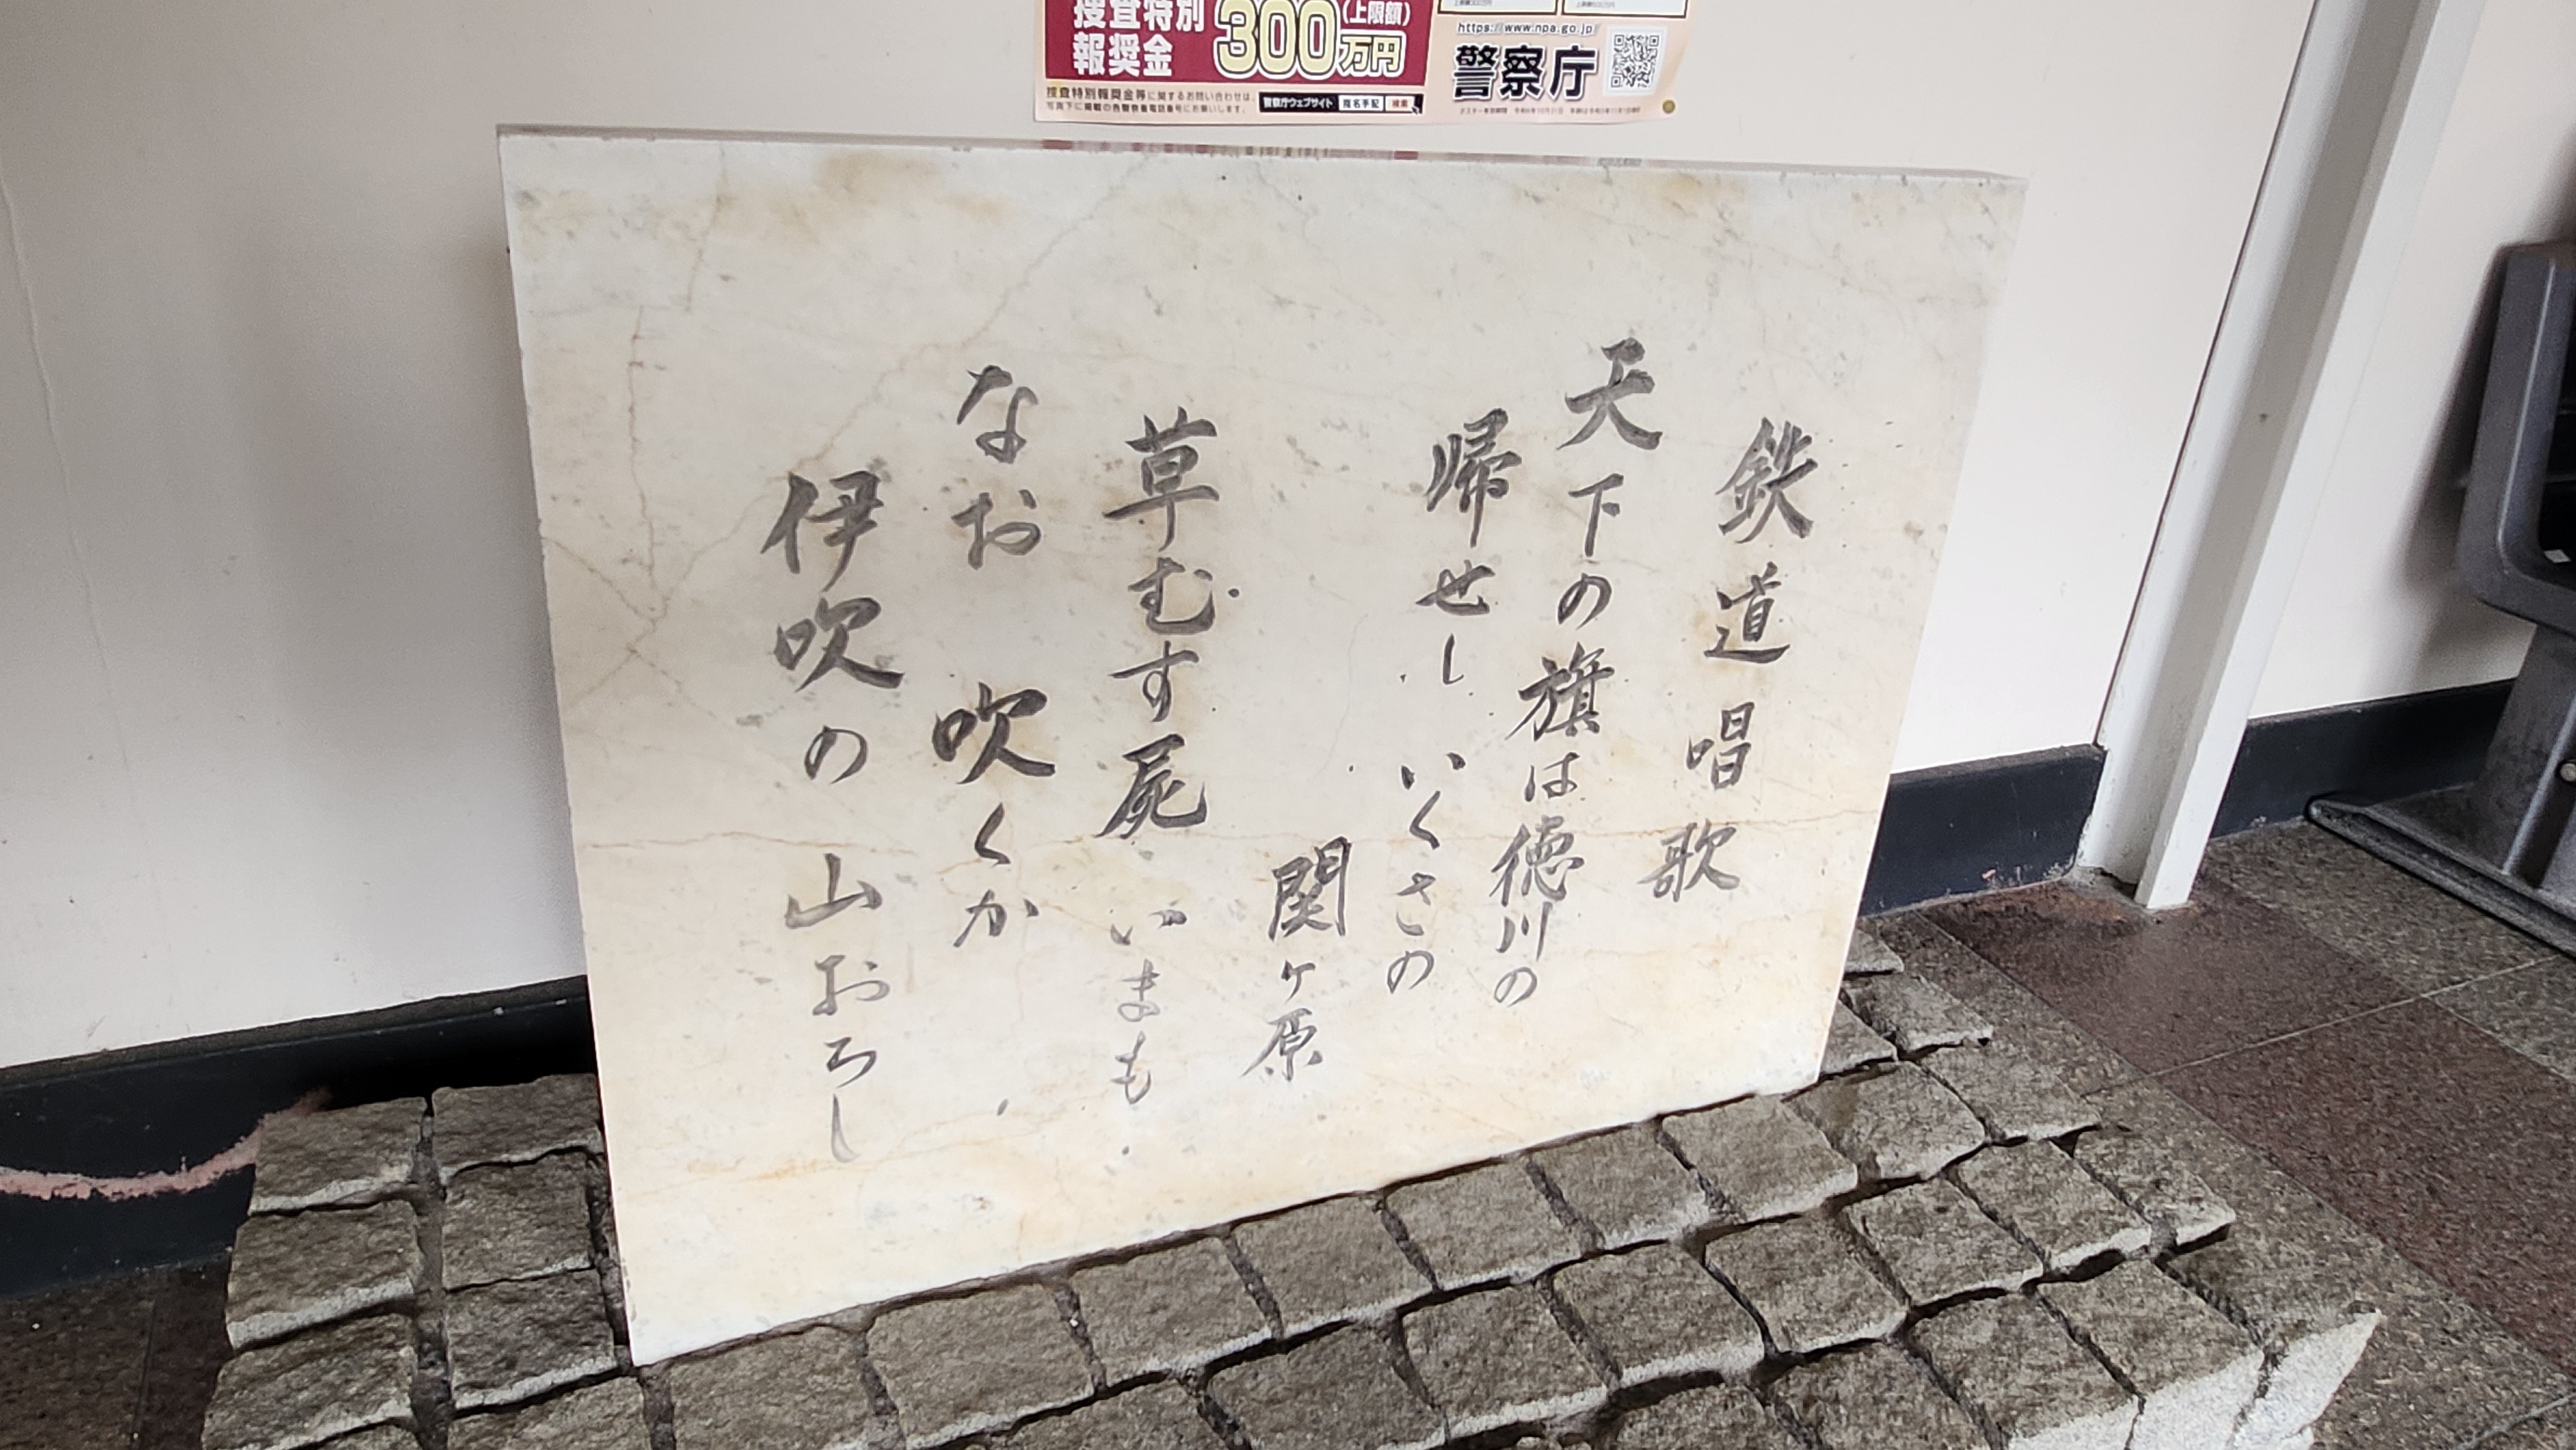 捜査特別
報奨金
300万円
(上限額)
捜査特別報奨金等に関するお問い合わせは、
写真下に掲載の各警察署電話番号にお願いします。
警察庁ウェブサイト 指名手配 検索
https://www.npa.go.jp/
警察庁
鉄道唱歌
天下の旗は徳川の
帰せし いくさの
関ヶ原
草むす屍 いまも
なお 吹くか
伊吹の 山おろし